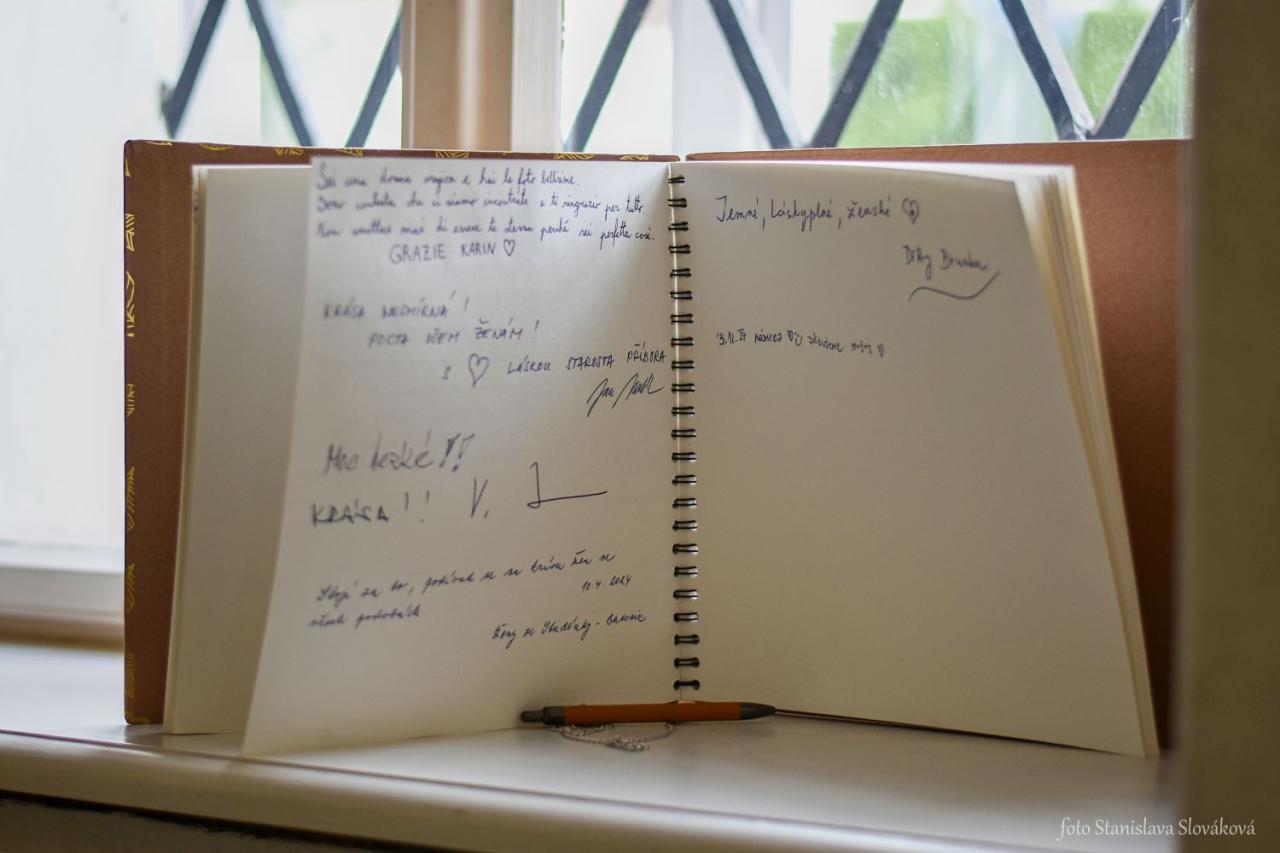 Sei una donna magica e hai le foto bellissime.
Sono contenta che ci siamo incontrate e ti ringrazio per tutto.
Non smettere mai di essere te stessa perché sei perfetta così.
GRAZIE KARIN ♡
KRÁSA NESMÍRNÁ!
POCTA VŠEM ŽENÁM!
S ♡ LÁSKOU STAROSTA PŘÍBORA
Jan
Moc hezké!!
KRÁSA!! V.
Stojí za to, podívat se na krásu žen ve
všech podobách
10.4.2024
Ženy ze Studénky - Butovic
Jemné, láskyplné, ženské
Díky
foto Stanislava Slováková